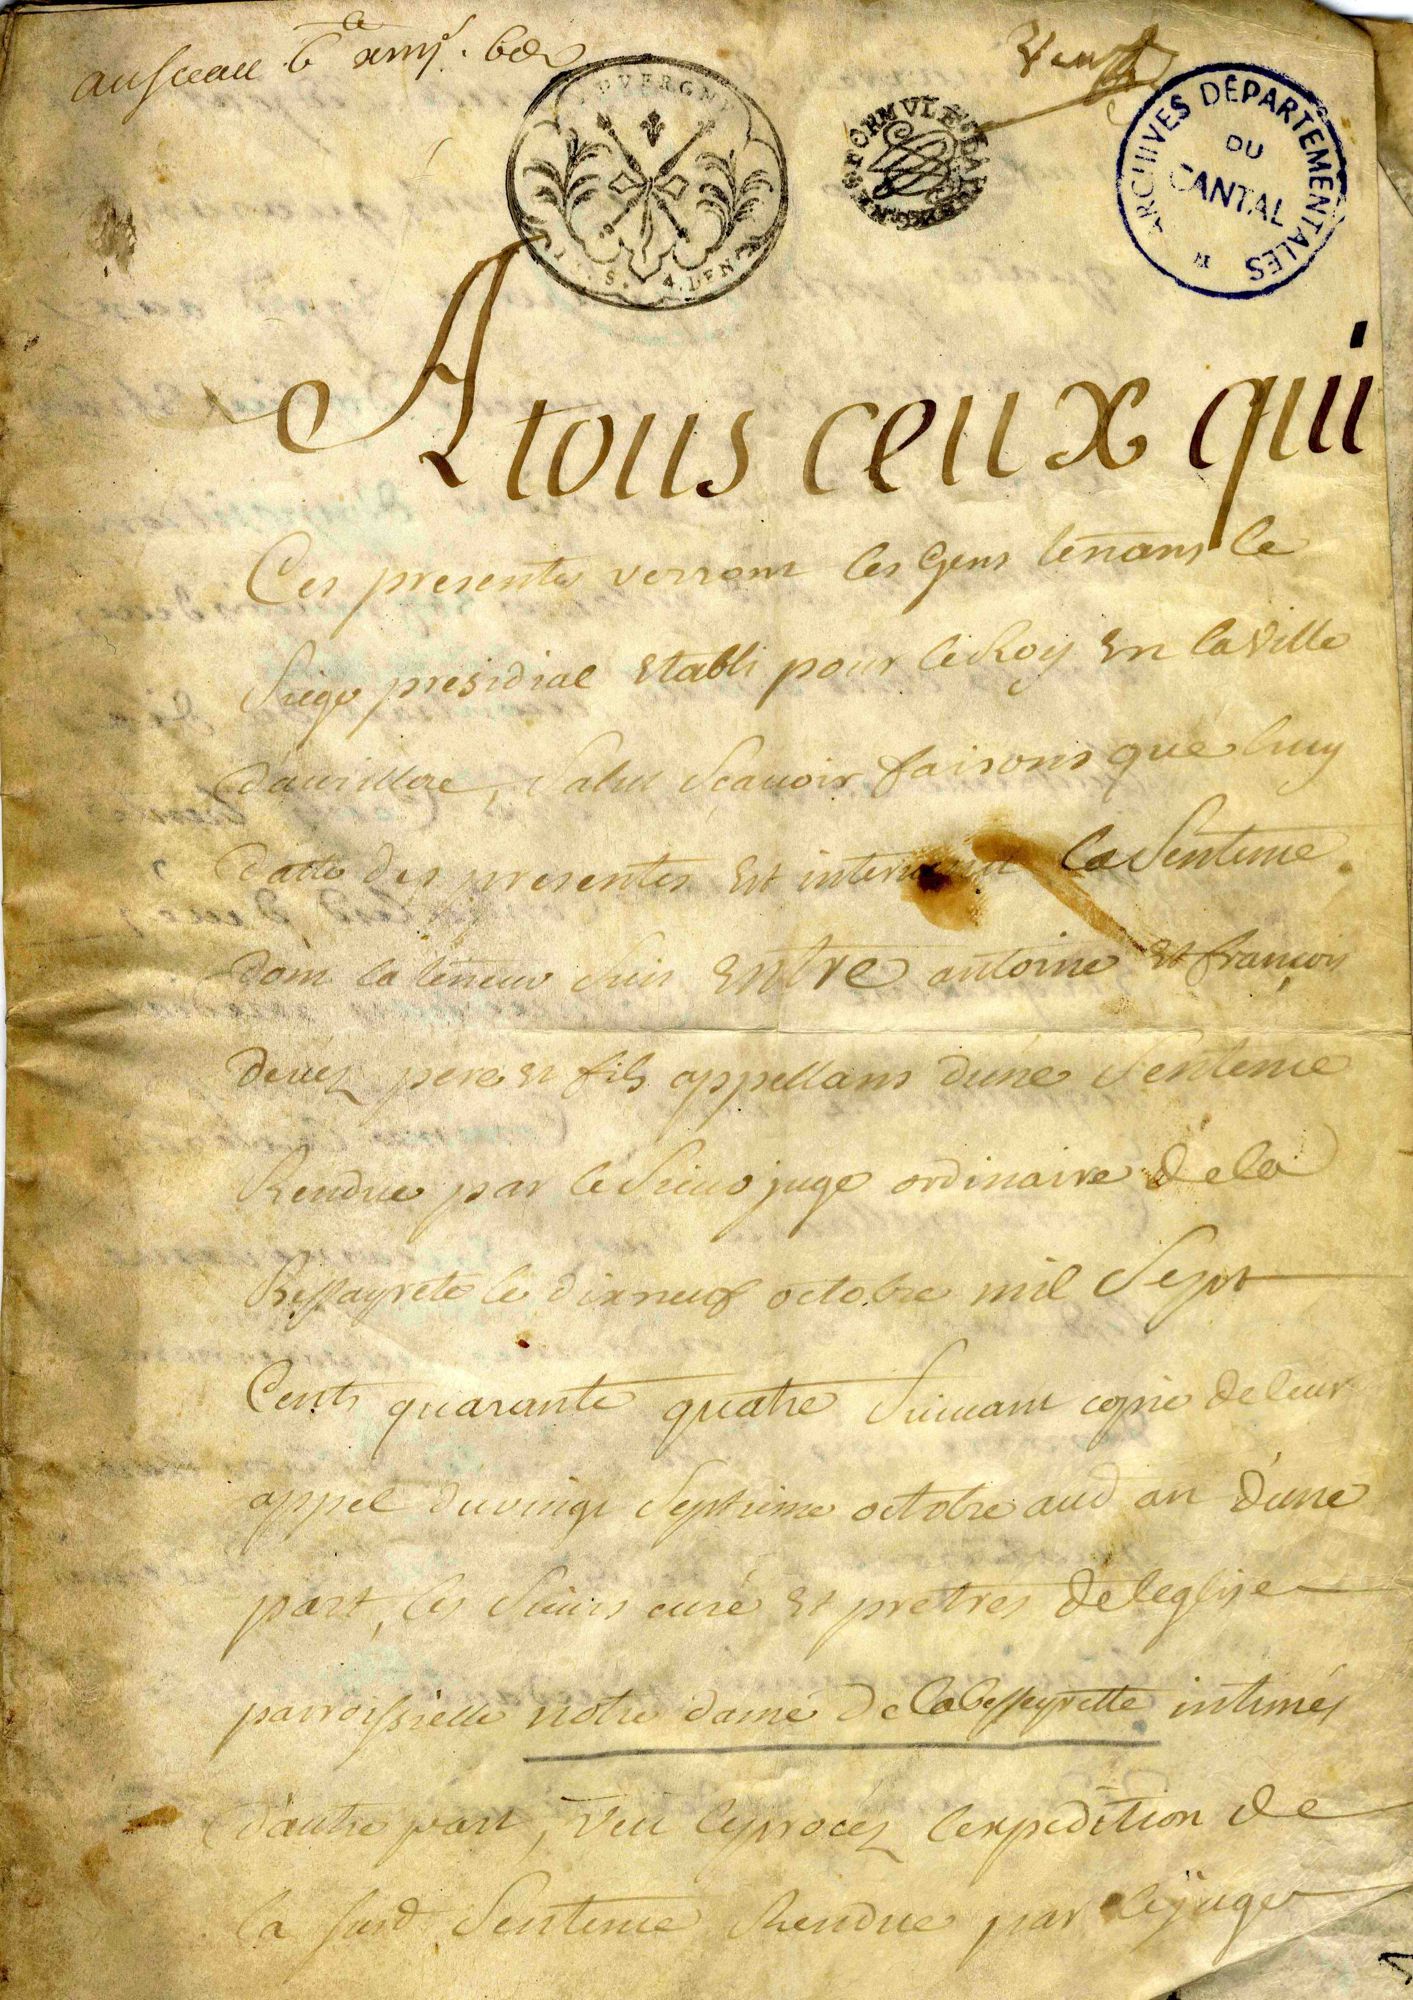 AUVERGNE
FORMULE
ARCHIVES DEPARTEMENTALES
DU
CANTAL
A tous ceux qui
Ces presentes verront les Gens tenans le
Siege presidial Etabli pour le Roy En la Ville
daurillac, Salut Scavoir faisons que luy
datte des presentes Est intervenu la Sentence
dont la teneur Suit Entre antoine Et françois
devez pere Et fils appellans dune Sentence
Rendue par le Sieur juge ordinaire de la
Besseyrete le dixneuf octobre mil Sept
Cents quarante quatre Suivant copie de leur
appel du vingt Septieme octobre aud an dune
part, les Sieurs curé Et pretres de leglise
parroissielle notre dame de labesseyrette intimés
dautre part, Veu le procéz lexpedition de
la susd Sentence Rendue par le juge